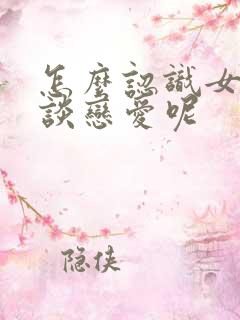 怎麼認識女
談戀愛呢
隐侠